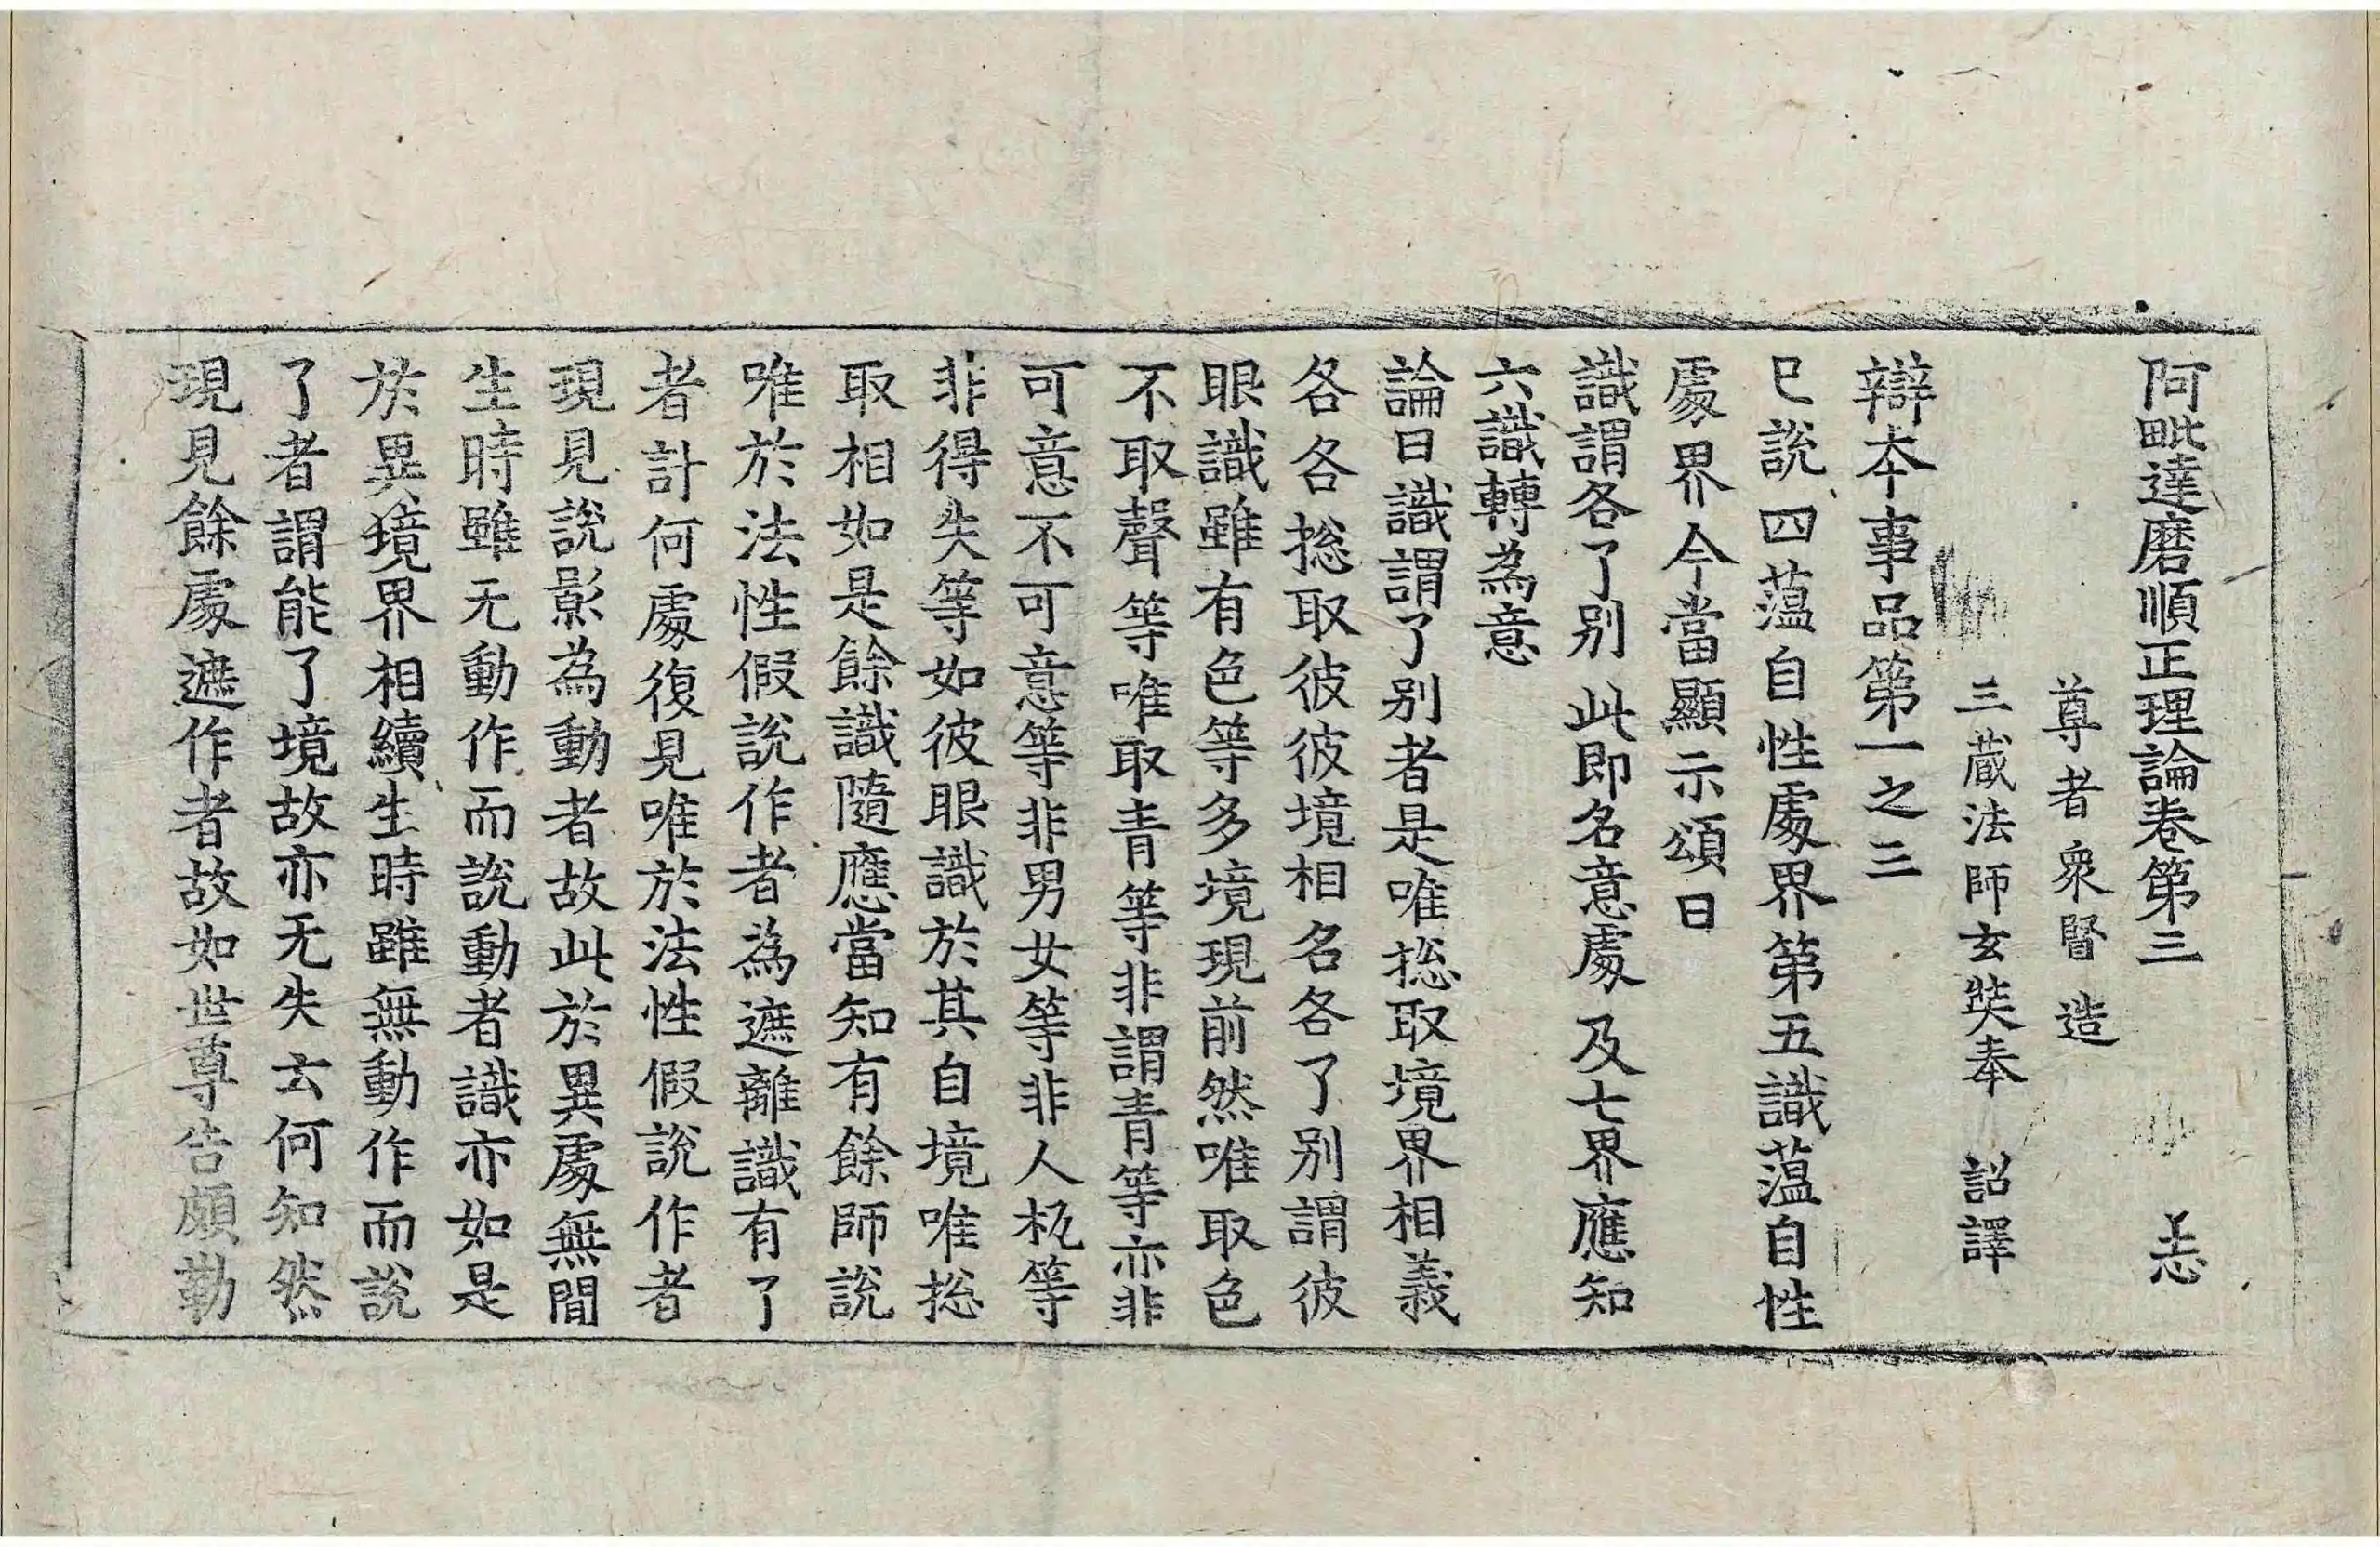 阿毗達磨順正理論卷第三 㤀
尊者衆賢 造
三藏法師玄奘奉 詔譯
辯本事品第一之三
已說四蕰自性處界第五識蕰自性
處界今當顯示頌曰
識謂各了別 此即名意處 及七界應知
六識轉為意
論曰識謂了別者是唯揔取境界相義
各各揔取彼彼境相名各了別謂彼
眼識雖有色等多境現前然唯取色
不取聲等唯取青等非謂青等亦非
可意不可意等非男女等非人杌等
非得失等如彼眼識於其自境唯揔
取相如是餘識隨應當知有餘師說
唯於法性假說作者為遮離識有了
者計何處復見唯於法性假說作者
現見說影為動者故此於異處無間
生時雖无動作而說動者識亦如是
於異境界相續生時雖無動作而說
了者謂能了境故亦无失云何知然
現見餘處遮作者故如世尊告頗勒